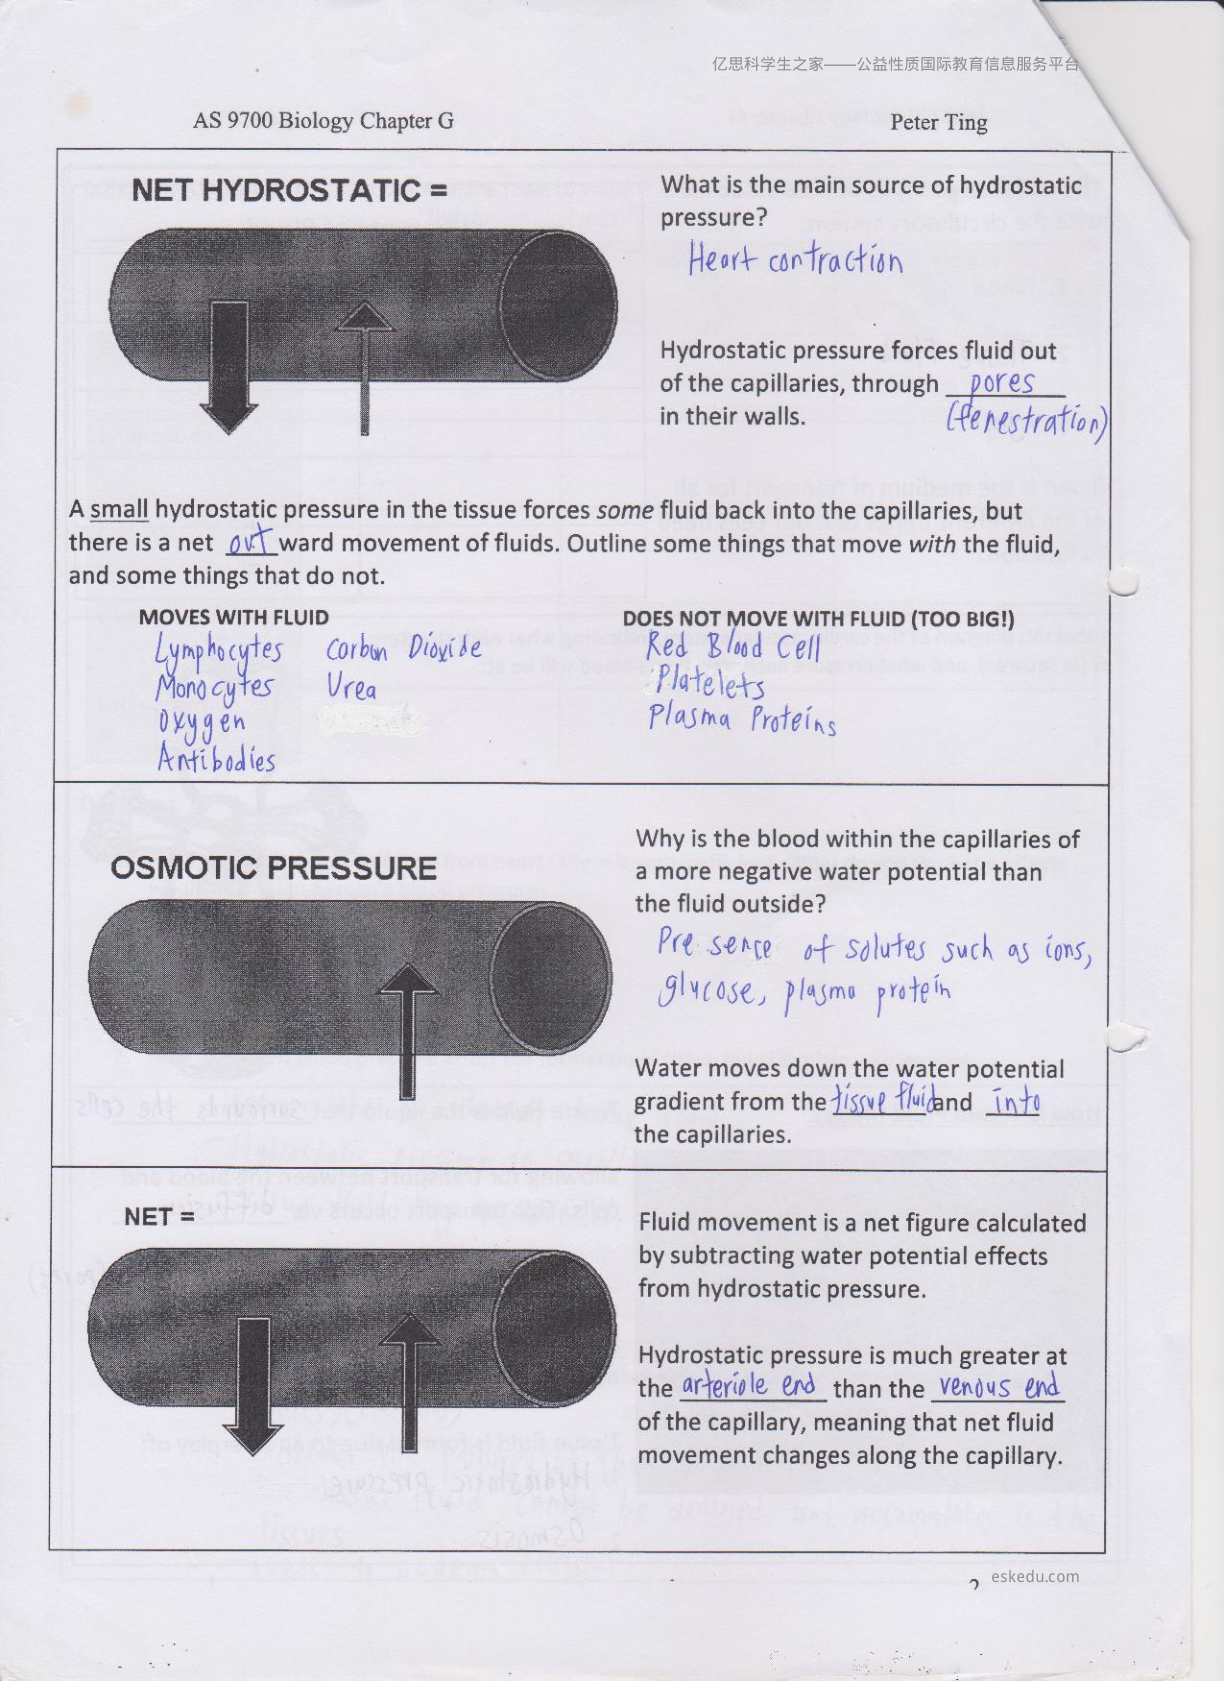 亿思科学生之家——公益性质国际教育信息服务平台
AS 9700 Biology Chapter G
Peter Ting
NET HYDROSTATIC =
What is the main source of hydrostatic
pressure?
Heart contraction
Hydrostatic pressure forces fluid out
of the capillaries, through pores
in their walls. (fenestration)
A small hydrostatic pressure in the tissue forces some fluid back into the capillaries, but
there is a net out ward movement of fluids. Outline some things that move with the fluid,
and some things that do not.
MOVES WITH FLUID
Lymphocytes Carbon Dioxide
Monocytes Urea
Oxygen
Antibodies
DOES NOT MOVE WITH FLUID (TOO BIG!)
Red Blood Cell
Platelets
Plasma Proteins
OSMOTIC PRESSURE
Why is the blood within the capillaries of
a more negative water potential than
the fluid outside?
Presence of solutes such as ions,
glucose, plasma protein
Water moves down the water potential
gradient from the tissue fluid and into
the capillaries.
NET =
Fluid movement is a net figure calculated
by subtracting water potential effects
from hydrostatic pressure.
Hydrostatic pressure is much greater at
the arteriole end than the venous end
of the capillary, meaning that net fluid
movement changes along the capillary.
eskedu.com